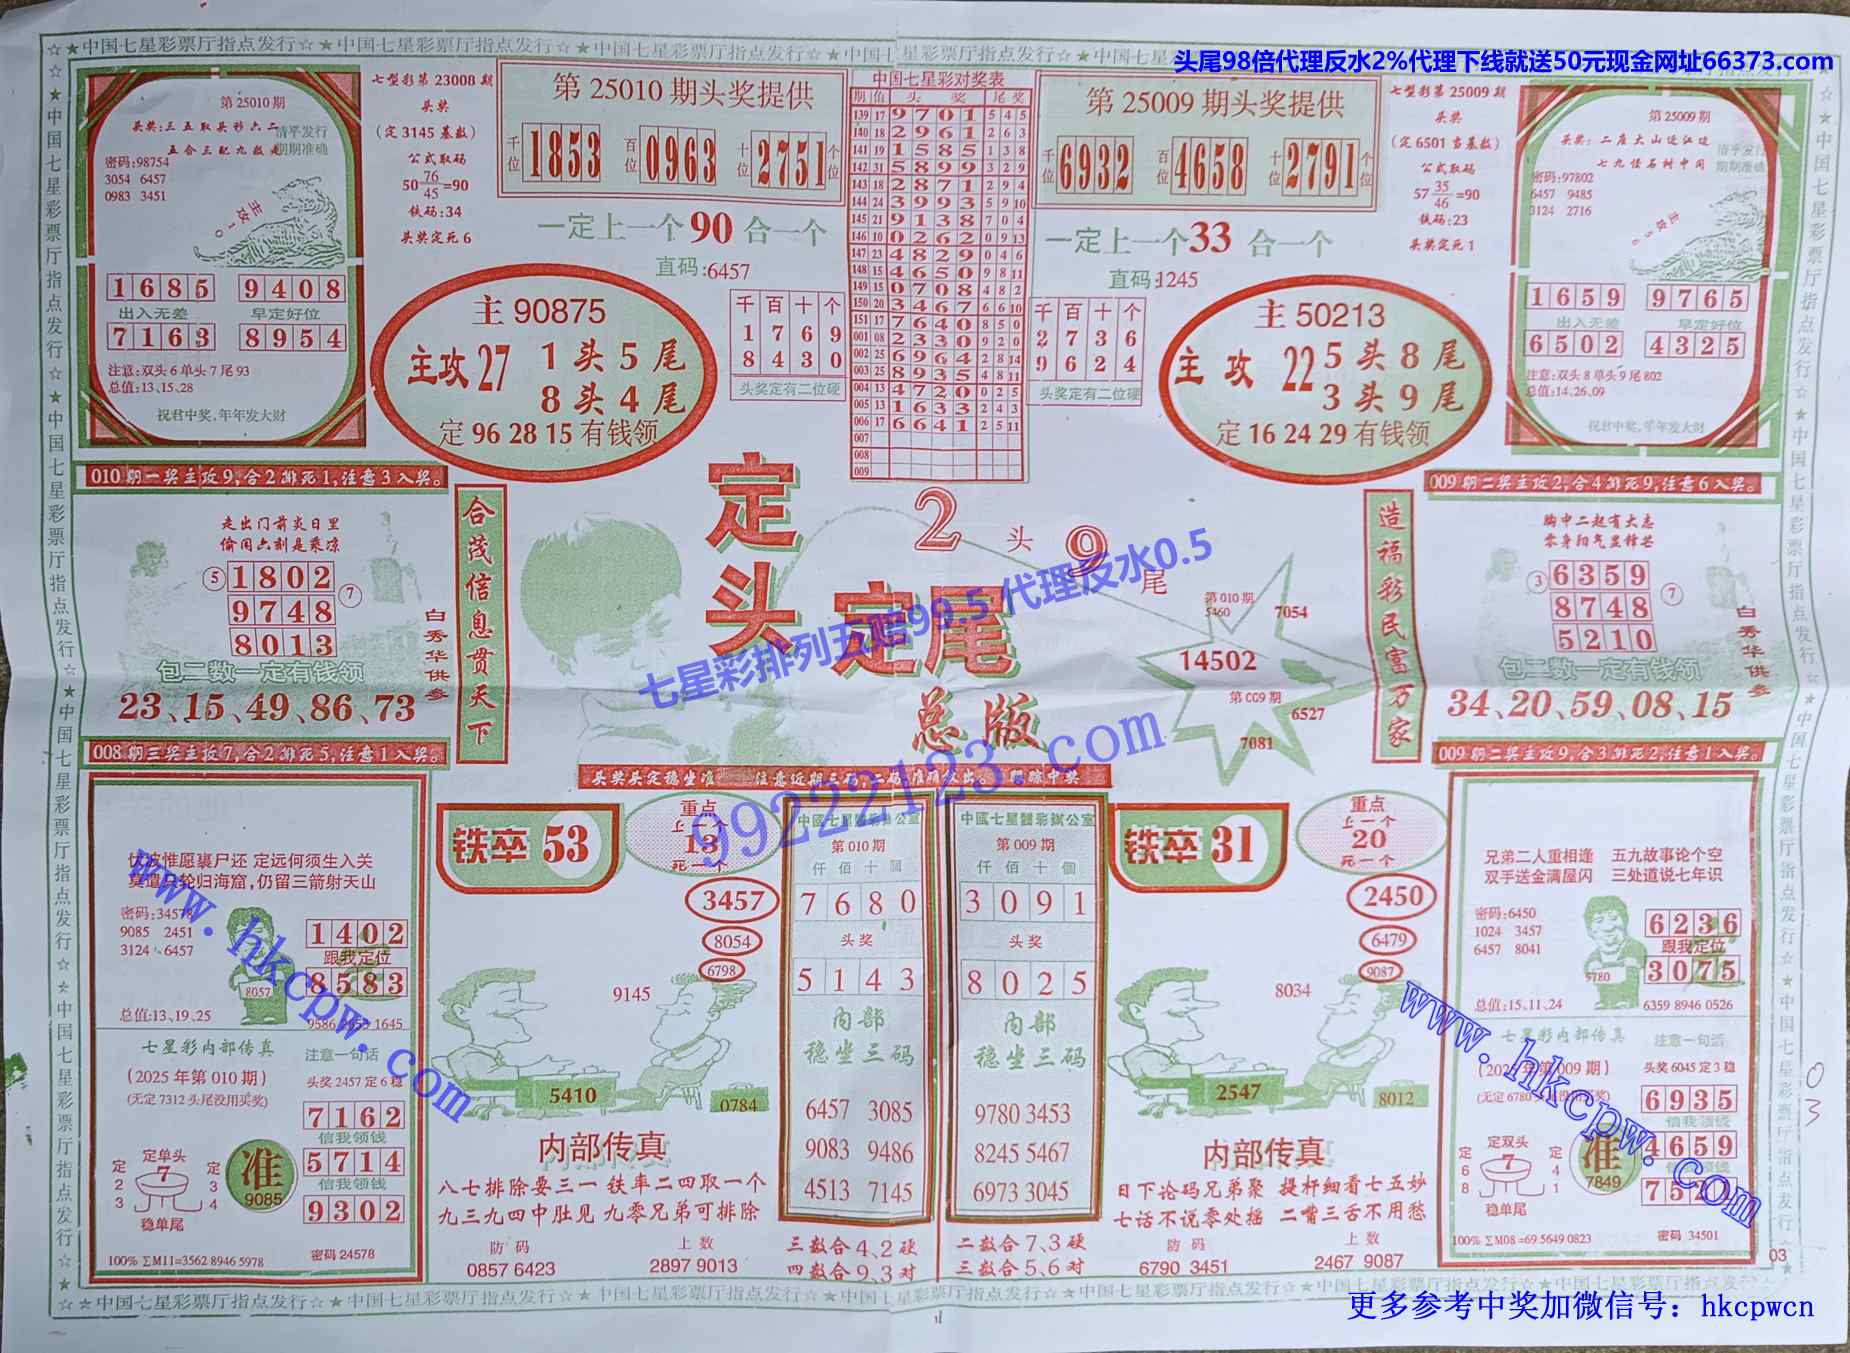 头尾98倍代理反水2%代理下线就送50元现金网址66373.com
☆★中国七星彩票厅指点发行☆★中国七星彩票厅指点发行☆★中国七星彩票厅指点发行
第 25010 期
头奖:三五取头秒六二
五合三配九数走
清平发行
期期准确
密码:98754
3054 6457
0983 3451
主攻10
1685 9408
出入无差 早定好位
7163 8954
注意:双头 6 单头 7 尾 93
总值:13、15、28
祝君中奖,年年发大财
七型彩第 23008 期
头奖
(定 3145 基数)
公式取码
76
50 =90
45
铁码:34
头奖定死 6
第 25010 期头奖提供
千位 1853 百位 0963 十位 2751 个位
一定上一个 90 合一个
直码:6457
千百十个
1769
8430
头奖定有二位硬
主 90875
主攻 27 1 头 5 尾
8 头 4 尾
定 96 28 15 有钱领
中国七星彩对奖表
期 值 头奖 尾奖
139 17 9701 5 4 5
140 18 2961 2 6 3
141 19 1585 1 3 8
142 31 5899 3 2 9
143 18 2871 2 9 4
144 24 3993 5 9 10
145 21 9138 7 0 4
146 10 0262 0 9 13
147 23 4829 0 4 6
148 15 4650 9 8 11
149 15 0708 4 8 2
150 20 3467 6 6 10
151 17 7640 8 5 0
001 08 2330 9 2 0
002 25 6964 2 8 14
003 25 8935 4 8 11
004 13 4720 0 2 5
005 13 1633 2 4 3
006 17 6641 2 5 11
007
008
009
第 25009 期头奖提供
千位 6932 百位 4658 十位 2791 个位
一定上一个 33 合一个
直码:1245
千百十个
2736
9624
头奖定有二位硬
主 50213
主攻 22 5 头 8 尾
3 头 9 尾
定 16 24 29 有钱领
七型彩第 25009 期
头奖
(定 6501 当基数)
公式取码
35
57 =90
46
铁码:23
头奖定死 1
第 25009 期
头奖:二座大山近江边
七九怪石树中间
清平发行
期期准确
密码:97802
6457 9485
3124 2716
主攻56
1659 9765
出入无差 早定好位
6502 4325
注意:双头 8 单头 9 尾 802
总值:14、26、09
祝君中奖,年年发大财
010 期一奖主攻 9,合 2 排死 1,注意 3 入奖。
走出门前炎日里
偷闲六刻是乘凉
⑤ 1802 ⑦
9748
8013
包二数一定有钱领
23、15、49、86、73
白秀华供参
合茂信息贯天下
定头 2 头 9 尾
定尾
总版
七星彩排列五赔99.5 代理反水0.5
99222123.com
第 010 期
5460
7054
14502
第 009 期
6527
7081
造福彩民富万家
009 期二奖主攻 2,合 4 排死 9,注意 6 入奖。
胸中二起有大志
零身阳气显锋芒
③ 6359 ⑦
8748
5210
包二数一定有钱领
34、20、59、08、15
白秀华供参
008 期三奖主攻 7,合 2 排死 5,注意 1 入奖。
009 期二奖主攻 9,合 3 排死 2,注意 1 入奖。
伏波惟愿裹尸还 定远何须生入关
莫遣只轮归海窟,仍留三箭射天山
密码:34578
9085 2451
3124 6457
8057
1402
跟我定位
8583
总值:13、19、25
1645
七星彩内部传真
注意一句话
(2025 年第 010 期)
头奖 2457 定 6 稳
(无定 7312 头尾没用买奖)
7162
信我领钱
5714
信我领钱
9302
定单头
定 2 3
7
定 3 4
稳单尾
准
9085
100% ∑M11=3562 8946 5978
密码 24578
www.hkcpw.com
头奖头定稳坐准
铁卒 53
重点
上一个
13
死一个
3457
8054
6798
9145
5410
0784
内部传真
八七排除要三一 铁率二四取一个
九三九四中肚见 九零兄弟可排除
防码
0857 6423
上数
2897 9013
中國七星體彩辦公室
第 010 期
仟佰十個
7680
头奖
5143
内部
稳坐三码
6457 3085
9083 9486
4513 7145
三数合 4、2 硬
四数合 9、3 对
中國七星體彩辦公室
第 009 期
仟佰十個
3091
头奖
8025
内部
稳坐三码
9780 3453
8245 5467
6973 3045
二数合 7、3 硬
三数合 5、6 对
铁卒 31
重点
上一个
20
死一个
2450
6479
9087
8034
2547
8012
内部传真
日下论码兄弟聚 提杆细看七五妙
七话不说零处摇 二嘴三舌不用愁
防码
6790 3451
上数
2467 9087
兄弟二人重相逢 五九故事论个空
双手送金满屋闪 三处道说七年识
密码:6450
1024 3457
6457 8041
5780
6236
跟我定位
3075
总值:15、11、24
6359 8946 0526
七星彩内部传真
注意一句话
头奖 6045 定 3 稳
6935
4659
定双头
定 6 8
7
定 4 1
稳单尾
准
7849
100% ∑M08=69 5649 0823
密码 34501
www.hkcpw.com
03
03
☆☆中国七星彩票厅指点发行☆★中国七星彩票厅指点发行☆★中国七星彩票厅指点发行
更多参考中奖加微信号：hkcpwcn